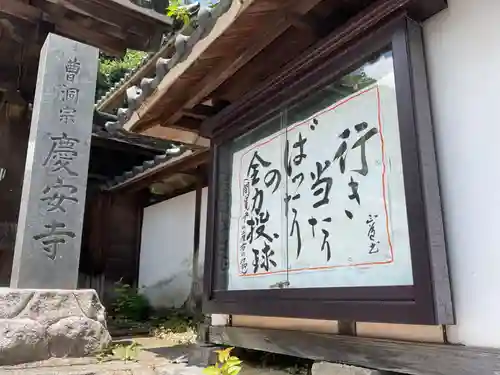 曹洞宗
慶安寺
行き当たり
ばったり
の
全力投球